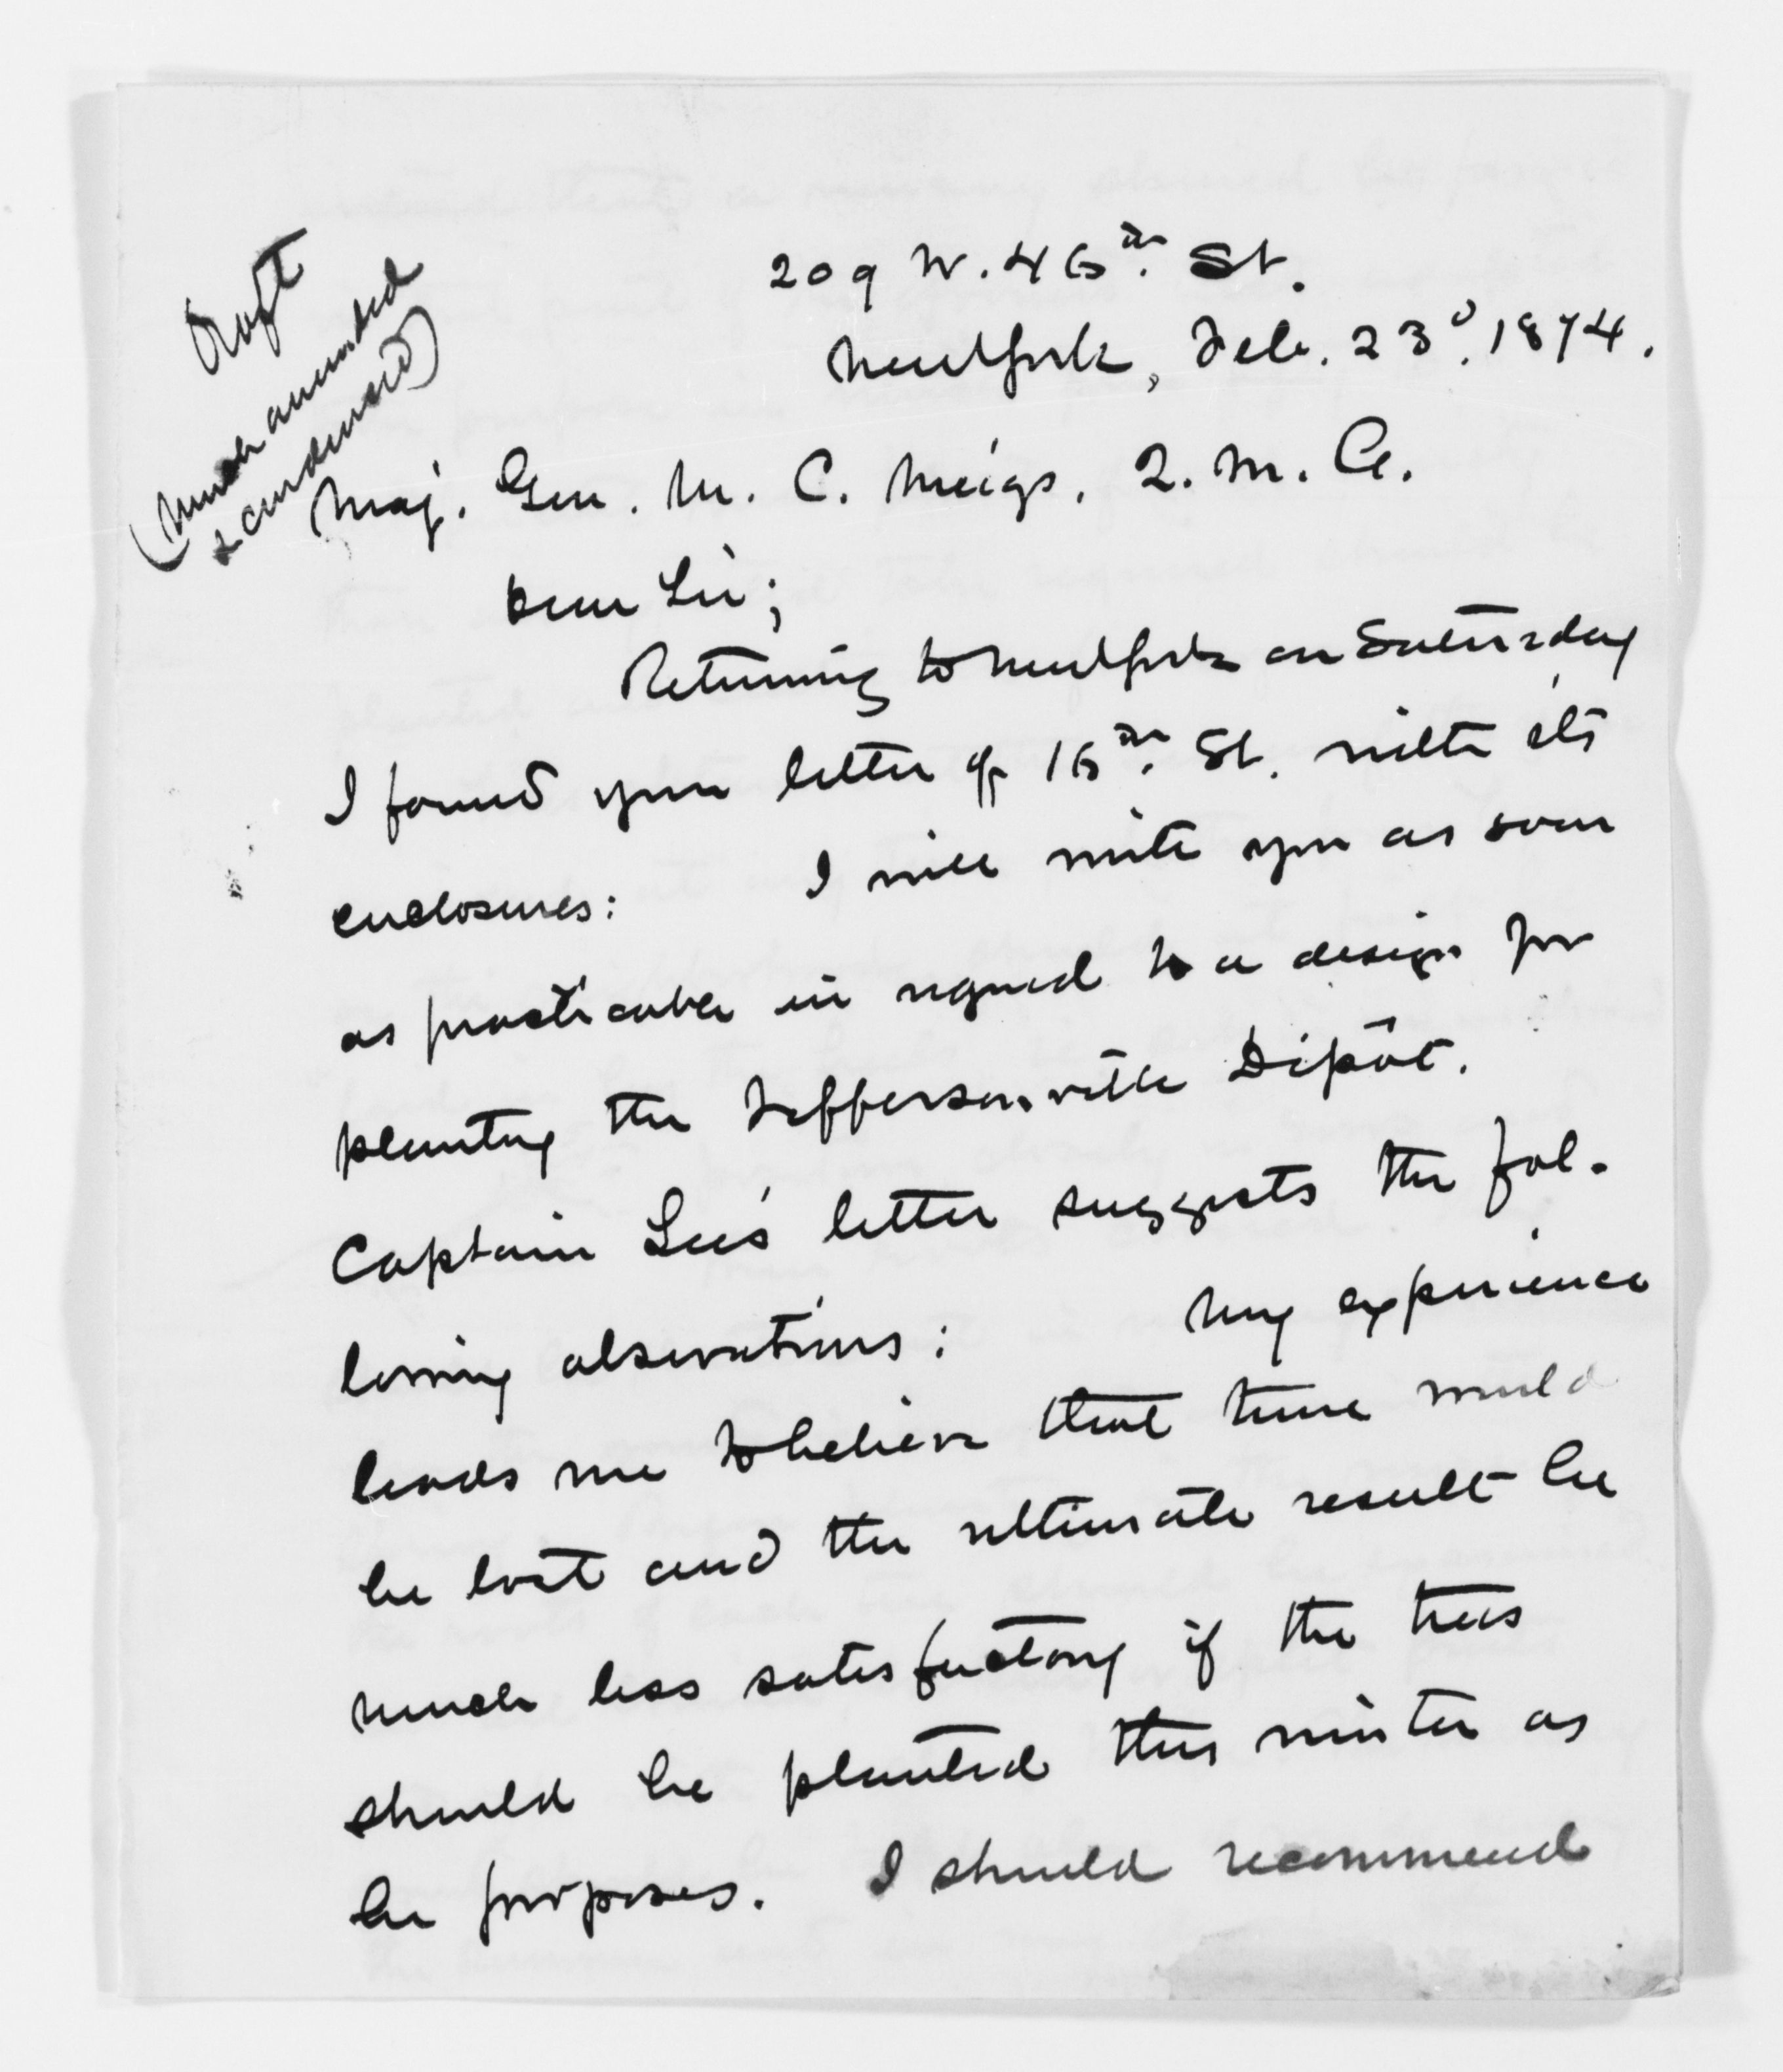 Draft
(much amended
& condensed)
209 W. 46th. St.
New York, Feb. 23d. 1874.
Maj. Gen. M. C. Meigs, Q. M. G.
Dear Sir;
Returning to New York on Saturday
I found your letter of 16th. St. with its
enclosures: I will write you as soon
as practicable in regard to a design for
planting the Jeffersonville Dépôt.
Captain Lee's letter suggests the fol-
lowing observations: My experience
leads me to believe that time would
be lost and the ultimate result be
much less satisfactory if the trees
should be planted this winter as
he proposes. I should recommend